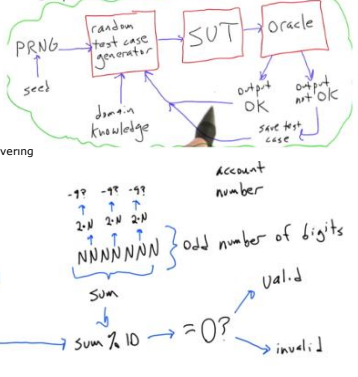 PRNG
seed
random
test case
generator
SUT
Oracle
domain
knowledge
output
OK
output
not OK
save test
case
vering
account
number
-9? -9? -9?
2·N 2·N 2·N
NNNNNNN
odd number of digits
sum
sum % 10
= 0?
valid
invalid